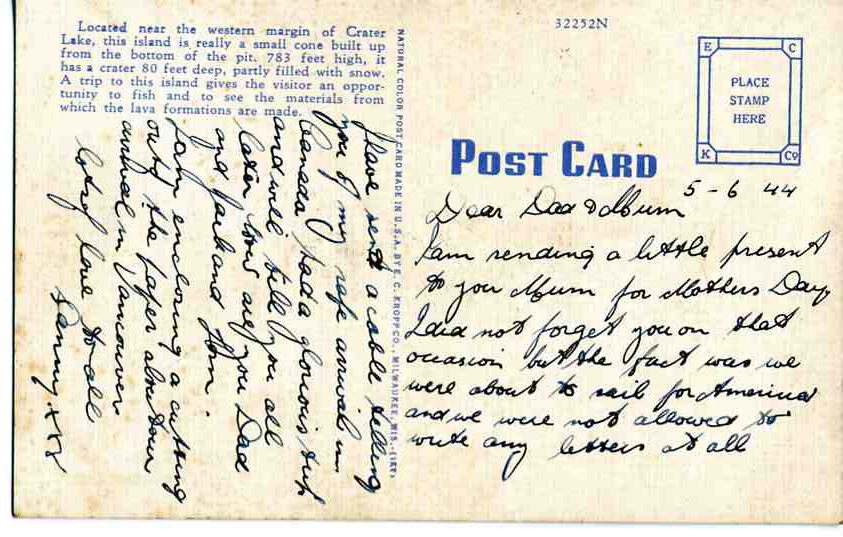 Located near the western margin of Crater
Lake, this island is really a small cone built up
from the bottom of the pit. 783 feet high, it
has a crater 80 feet deep, partly filled with snow.
A trip to this island gives the visitor an oppor-
tunity to fish and to see the materials from
which the lava formations are made.
32252N
E C
PLACE
STAMP
HERE
K Co
POST CARD
NATURAL COLOR POST CARD MADE IN U.S.A. BY E. C. KROPP CO., MILWAUKEE, WIS.
5-6 44
Dear Dad & Mum
I am sending a little present
to you Mum for Mothers Day
I did not forget you on that
occasion but the fact was we
were about to sail for America
and we were not allowed to
write any letters at all
I have sent a cable telling
you of my safe arrival in
Canada I had a glorious trip
and will tell you all
later How are you Dad
and and Tom.
I am enclosing a cutting
out of the paper about our
arrival in Vancouver
lots of love to all
xxx